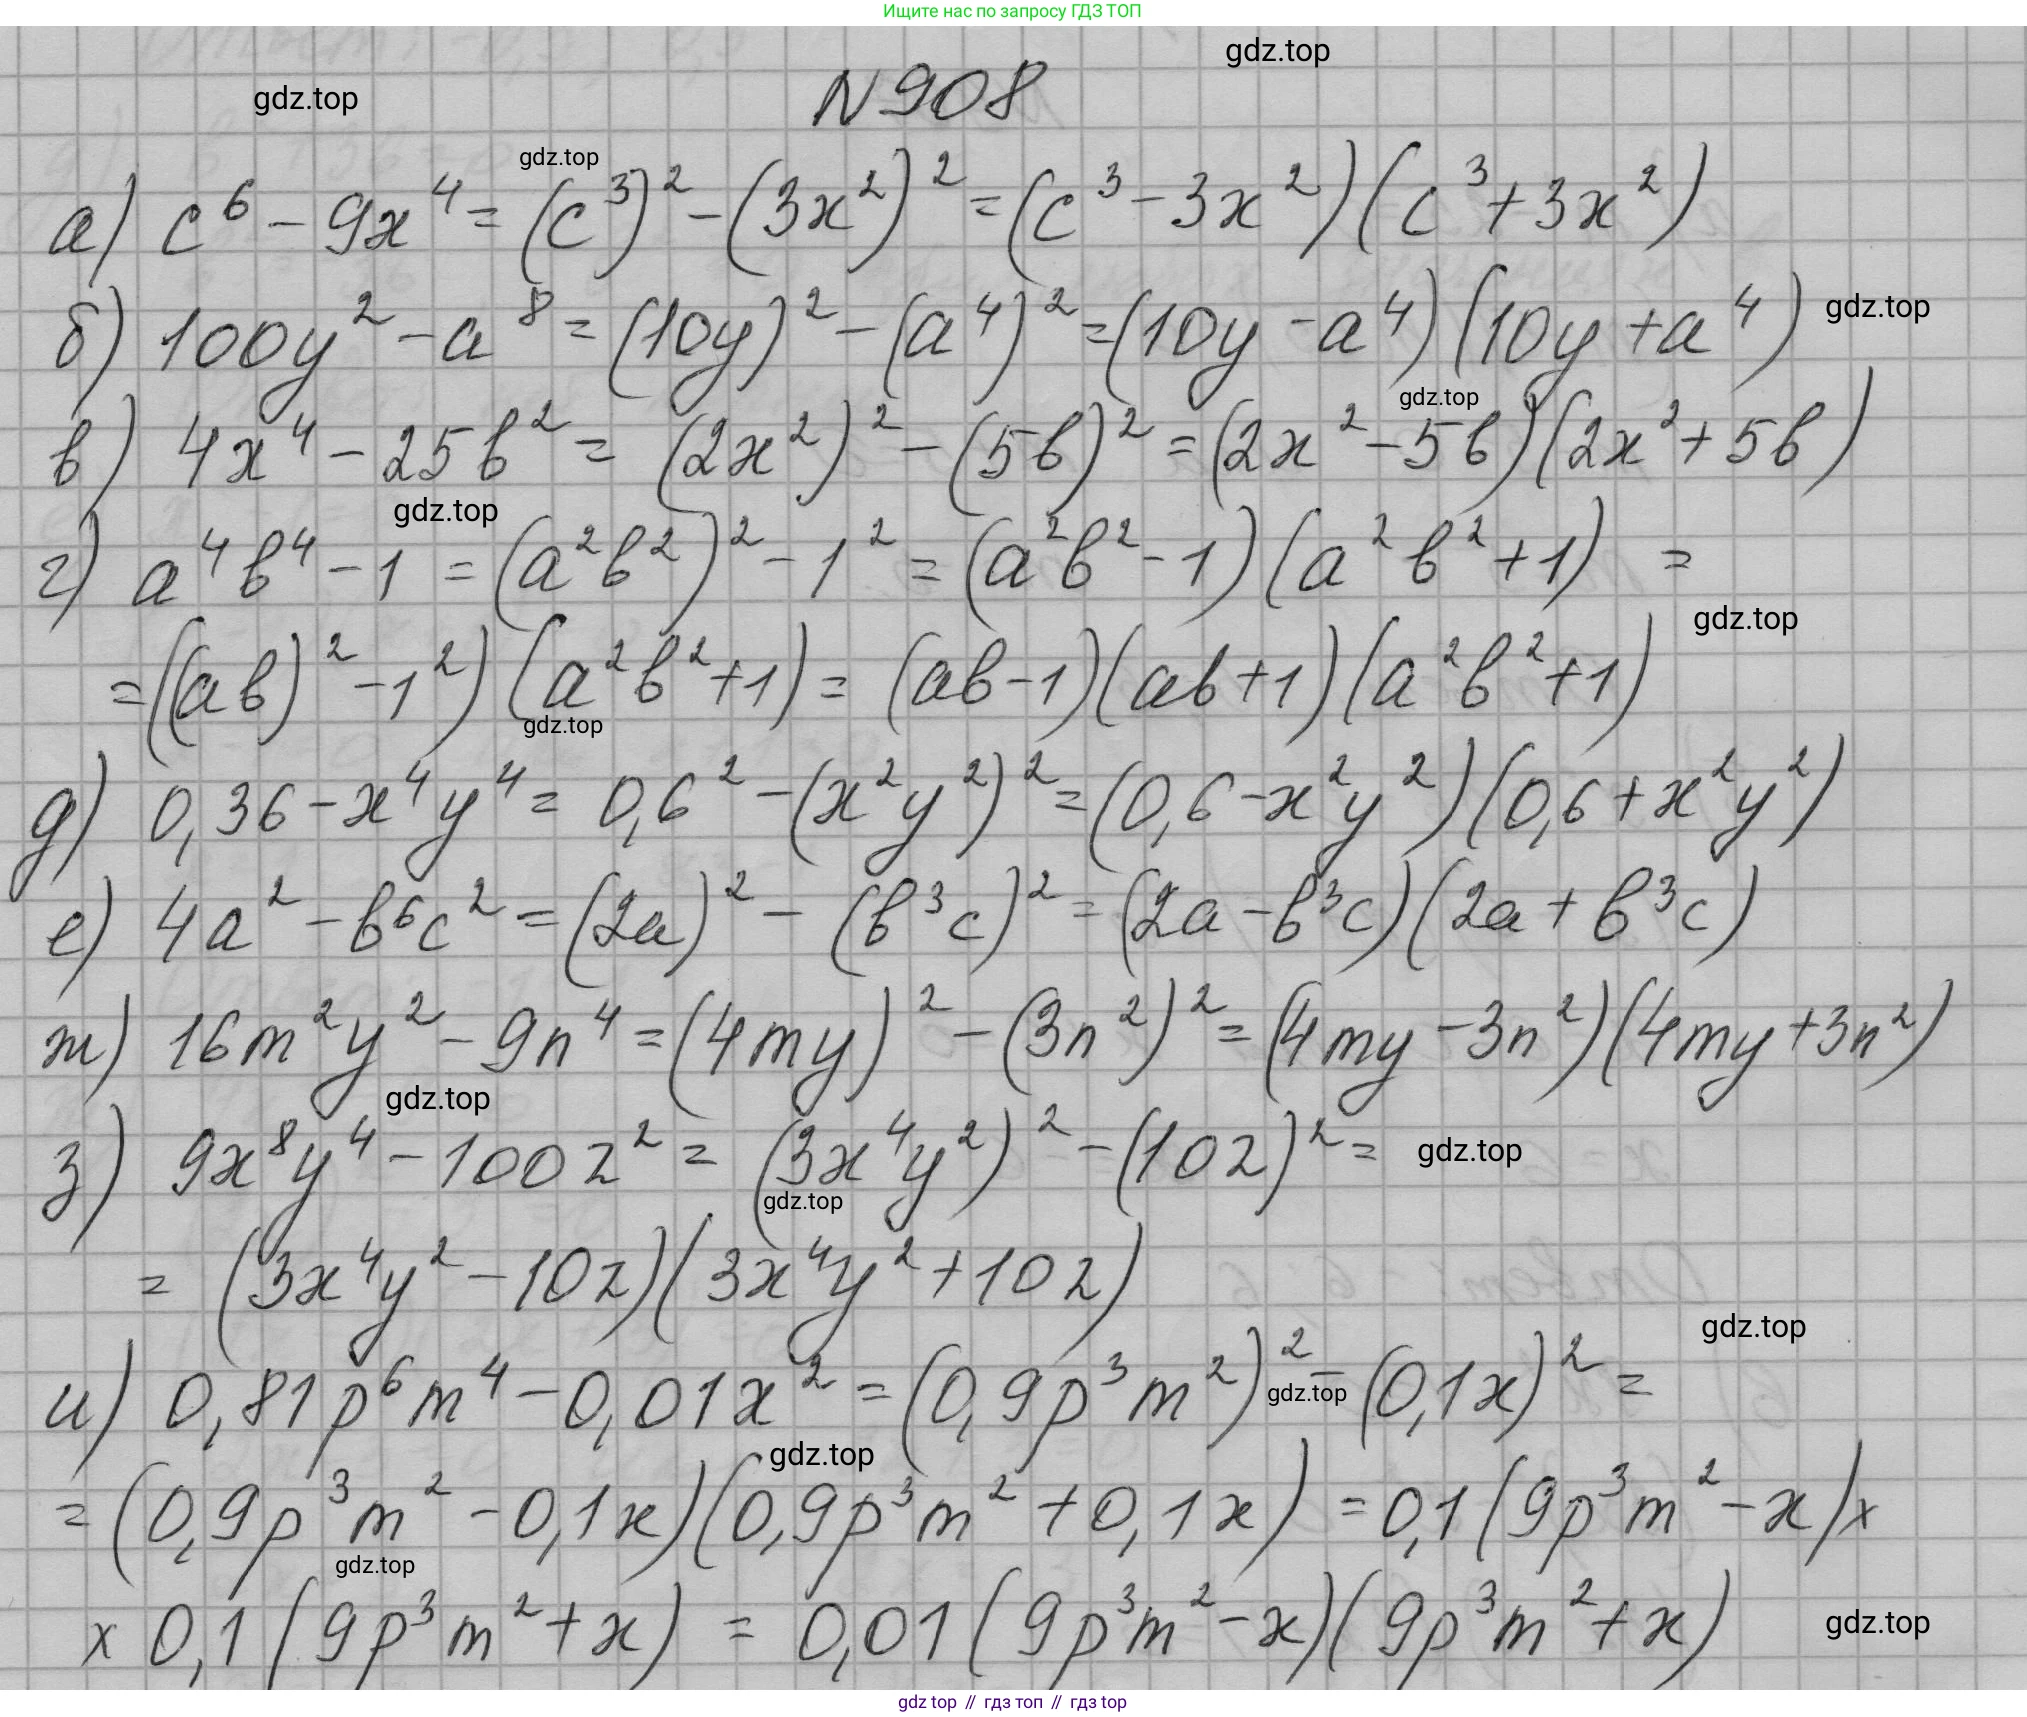 Ищите нас по запросу ГДЗ ТОП
gdz.top
gdz.top
N 908
gdz.top
а) c⁶ - 9x⁴ = (c³)² - (3x²)² = (c³ - 3x²)(c³ + 3x²)
б) 100y² - a⁸ = (10y)² - (a⁴)² = (10y - a⁴)(10y + a⁴)
gdz.top
gdz.top
в) 4x⁴ - 25b² = (2x²)² - (5b)² = (2x² - 5b)(2x² + 5b)
gdz.top
г) a⁴b⁴ - 1 = (a²b²)² - 1² = (a²b² - 1)(a²b² + 1) =
gdz.top
= ((ab)² - 1²)(a²b² + 1) = (ab - 1)(ab + 1)(a²b² + 1)
gdz.top
д) 0,36 - x⁴y⁴ = 0,6² - (x²y²)² = (0,6 - x²y²)(0,6 + x²y²)
е) 4a² - b⁶c² = (2a)² - (b³c)² = (2a - b³c)(2a + b³c)
ж) 16m²y² - 9n⁴ = (4my)² - (3n²)² = (4my - 3n²)(4my + 3n²)
gdz.top
з) 9x⁸y⁴ - 100z² = (3x⁴y²)² - (10z)² =
gdz.top
gdz.top
= (3x⁴y² - 10z)(3x⁴y² + 10z)
gdz.top
и) 0,81p⁶m⁴ - 0,01x² = (0,9p³m²)² - (0,1x)² =
gdz.top
gdz.top
= (0,9p³m² - 0,1x)(0,9p³m² + 0,1x) = 0,1(9p³m² - x)×
gdz.top
× 0,1(9p³m² + x) = 0,01(9p³m² - x)(9p³m² + x)
gdz.top
gdz top // гдз топ // гдз top